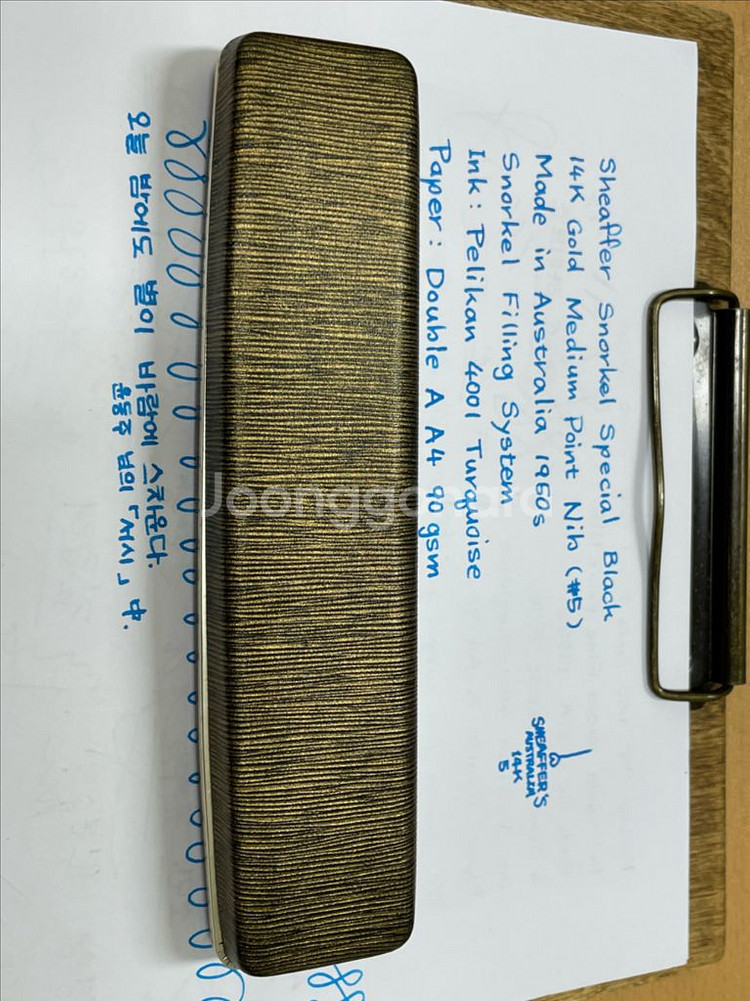 Sheaffer Snorkel Special Black
14K Gold Medium Point Nib (#5)
Made in Australia 1950s
Snorkel Filling System
Ink: Pelikan 4001 Turquoise
Paper: Double A A4 90 gsm
SHEAFFER'S
AUSTRALIA
14K
5
오늘 밤에도 별이 바람에 스치운다.
윤동주
Joonggonara